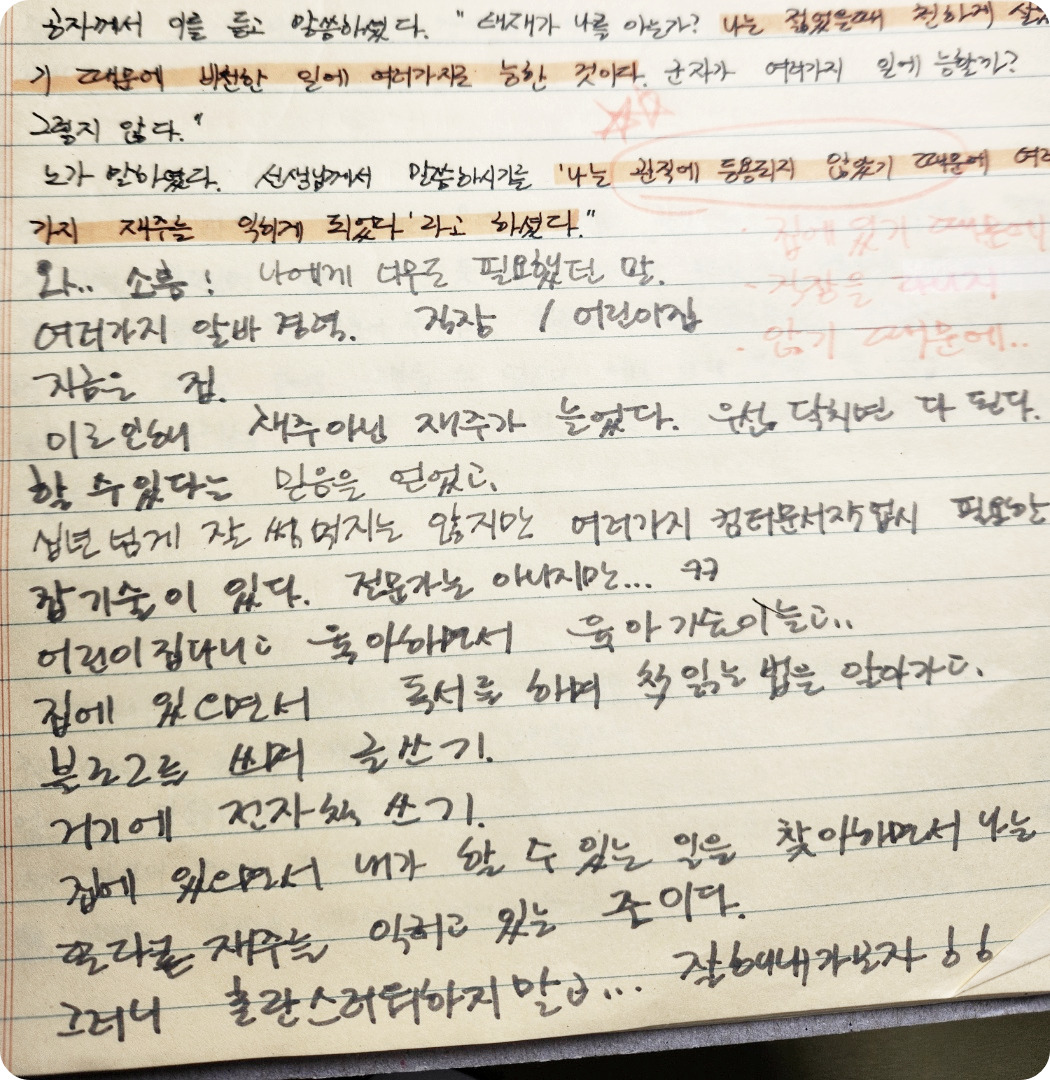 공자께서 이를 듣고 말씀하셨다. "태재가 나를 아는가? 나는 젊었을때 천하게 살았
기 때문에 비천한 일에 여러가지로 능한 것이다. 군자가 여러가지 일에 능할까?
그렇지 않다."
노가 말하였다. 선생님께서 말씀하시기를 '나는 관직에 등용되지 않았기 때문에 여러
가지 재주를 익히게 되었다'라고 하셨다."
· 집에 있기 때문에
와.. 소름! 나에게 너무도 필요했던 말.
- 직장을
여러가지 알바 경력. 직장 / 어린이집
· 않기 때문에..
지금은 집.
이로인해 재주아닌 재주가 늘었다. 우선, 닥치면 다 된다.
할 수 있다는 믿음을 얻었고,
십년 넘게 잘 써먹지는 않지만 여러가지 컴터문서작업시 필요한
잡기술이 있다. 전문가는 아니지만... ㅋㅋ
어린이집다니고 육아하면서 육아기술이늘고..
집에 있으면서 독서를 하며 책읽는 법을 알아가고.
블로그를 쓰며 글쓰기.
거기에 전자책 쓰기.
집에 있으면서 내가 할 수 있는 일을 찾아하면서 나는
또다른 재주를 익히고 있는 중이다.
그러니 혼란스러워하지말고... 잘해내가보자!!